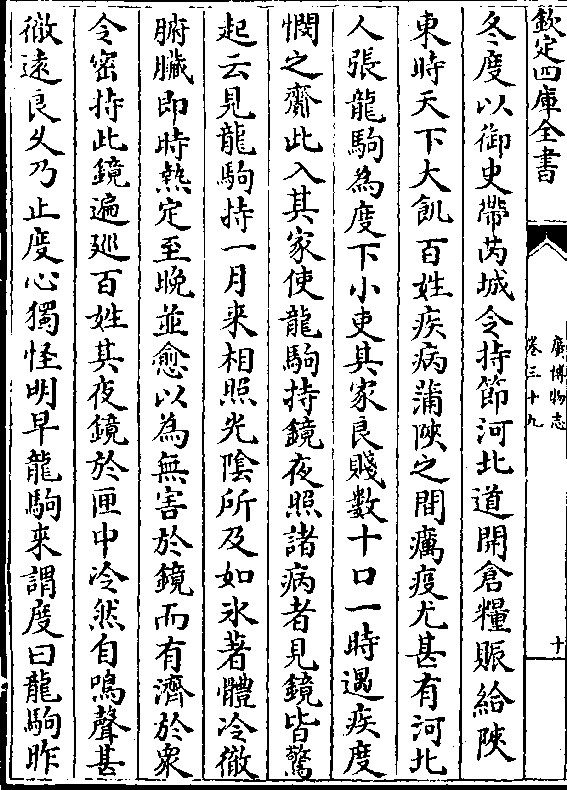 欽定四庫全書
廣博物志
卷三十九
十
冬度以御史帶芮城令持節河北道開倉糧賑給陜
東時天下大飢百姓疾病蒲陜之間癘疫尤甚有河北
人張龍駒為度下小吏其家良賤數十口一時遇疾度
憫之齎此入其家使龍駒持鏡夜照諸病者見鏡皆驚
起云見龍駒持一月来相照光隂所及如氷著體冷徹
腑臟即時熱定至晚並愈以為無害於鏡而有濟於衆
令密持此鏡遍廵百姓其夜鏡於匣中冷然自鳴聲甚
徹遠良乆乃止度心獨怪明早龍駒来謂度曰龍駒昨